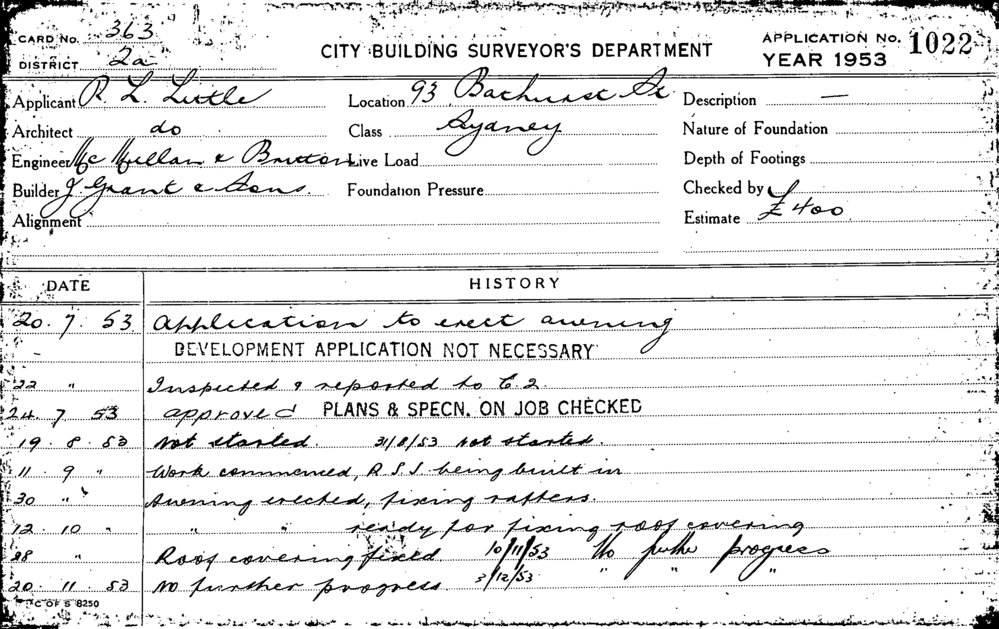 CARD No. 363
DISTRICT 2a
CITY BUILDING SURVEYOR'S DEPARTMENT
APPLICATION No. 1022
YEAR 1953
Applicant R. L. Little Location 93 Bathurst St Description —
Architect do Class Sydney Nature of Foundation
Engineer Mc Mullan & Britton Live Load Depth of Footings
Builder J. Grant & Sons. Foundation Pressure Checked by
Alignment Estimate £400
DATE HISTORY
20. 7. 53 Application to erect awning
DEVELOPMENT APPLICATION NOT NECESSARY
22 " Inspected & reported to C.2.
24. 7 53 approved PLANS & SPECN. ON JOB CHECKED
19. 8. 53 Not started. 31/8/53 Not started.
11. 9 " Work commenced, R.S.J. being built in
30 " Awning erected, fixing rafters.
12. 10 " " " ready for fixing roof covering
28 " Roof covering fixed 10/11/53 No further progress
20. 11. 53 No further progress. 3/12/53 " " "
C OF S 8250